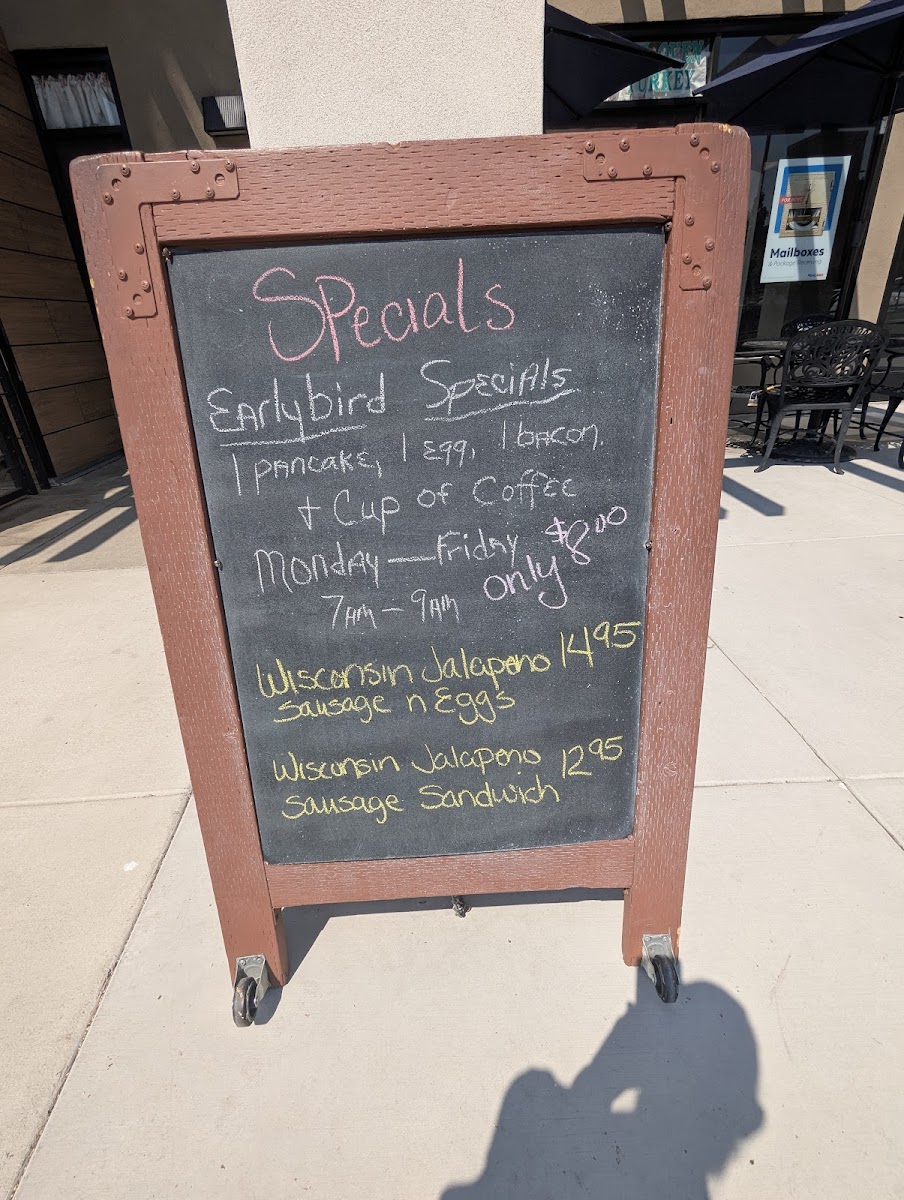 TURKEY
Mailboxes
& Package Receiving
SPecials
EArlybird SpeciAls
1 PANCAKE, 1 Egg, 1 bACON,
+ Cup of Coffee
MondAy — FridAy only $8.00
7AM - 9AM
Wisconsin Jalapeno 14.95
Sausage n Eggs
Wisconsin Jalapeno 12.95
Sausage Sandwich